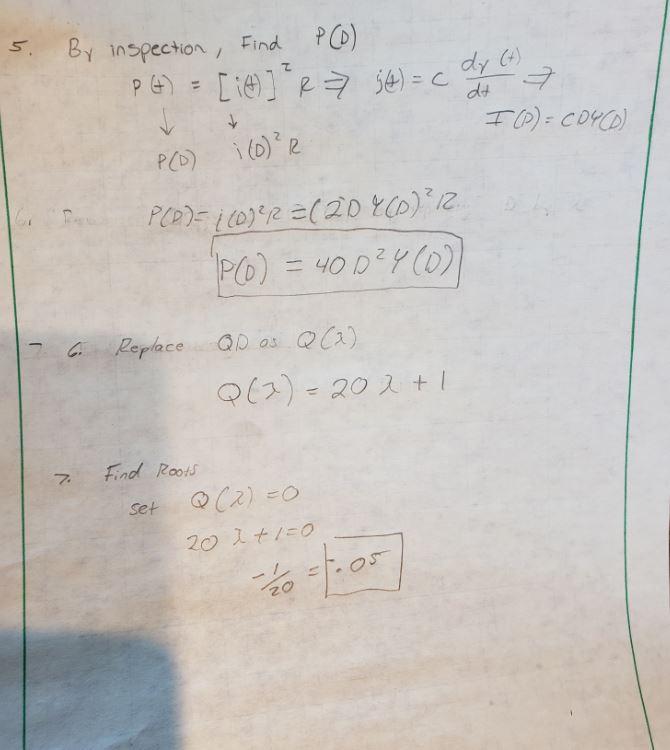 5. By inspection, Find P(D)
P(t) = [i(t)]² R ⇒ i(t) = C dy(t)/dt ⇒
I(D) = CDY(D)
↓ ↓
P(D) i(D)² R
P(D) = i(D)²R = (2D Y(D)²R
P(D) = 40 D² Y(D)
6. Replace QD as Q(λ)
Q(λ) = 20 λ + 1
7. Find Roots
set Q(λ) = 0
20 λ + 1 = 0
-1/20 = -.05